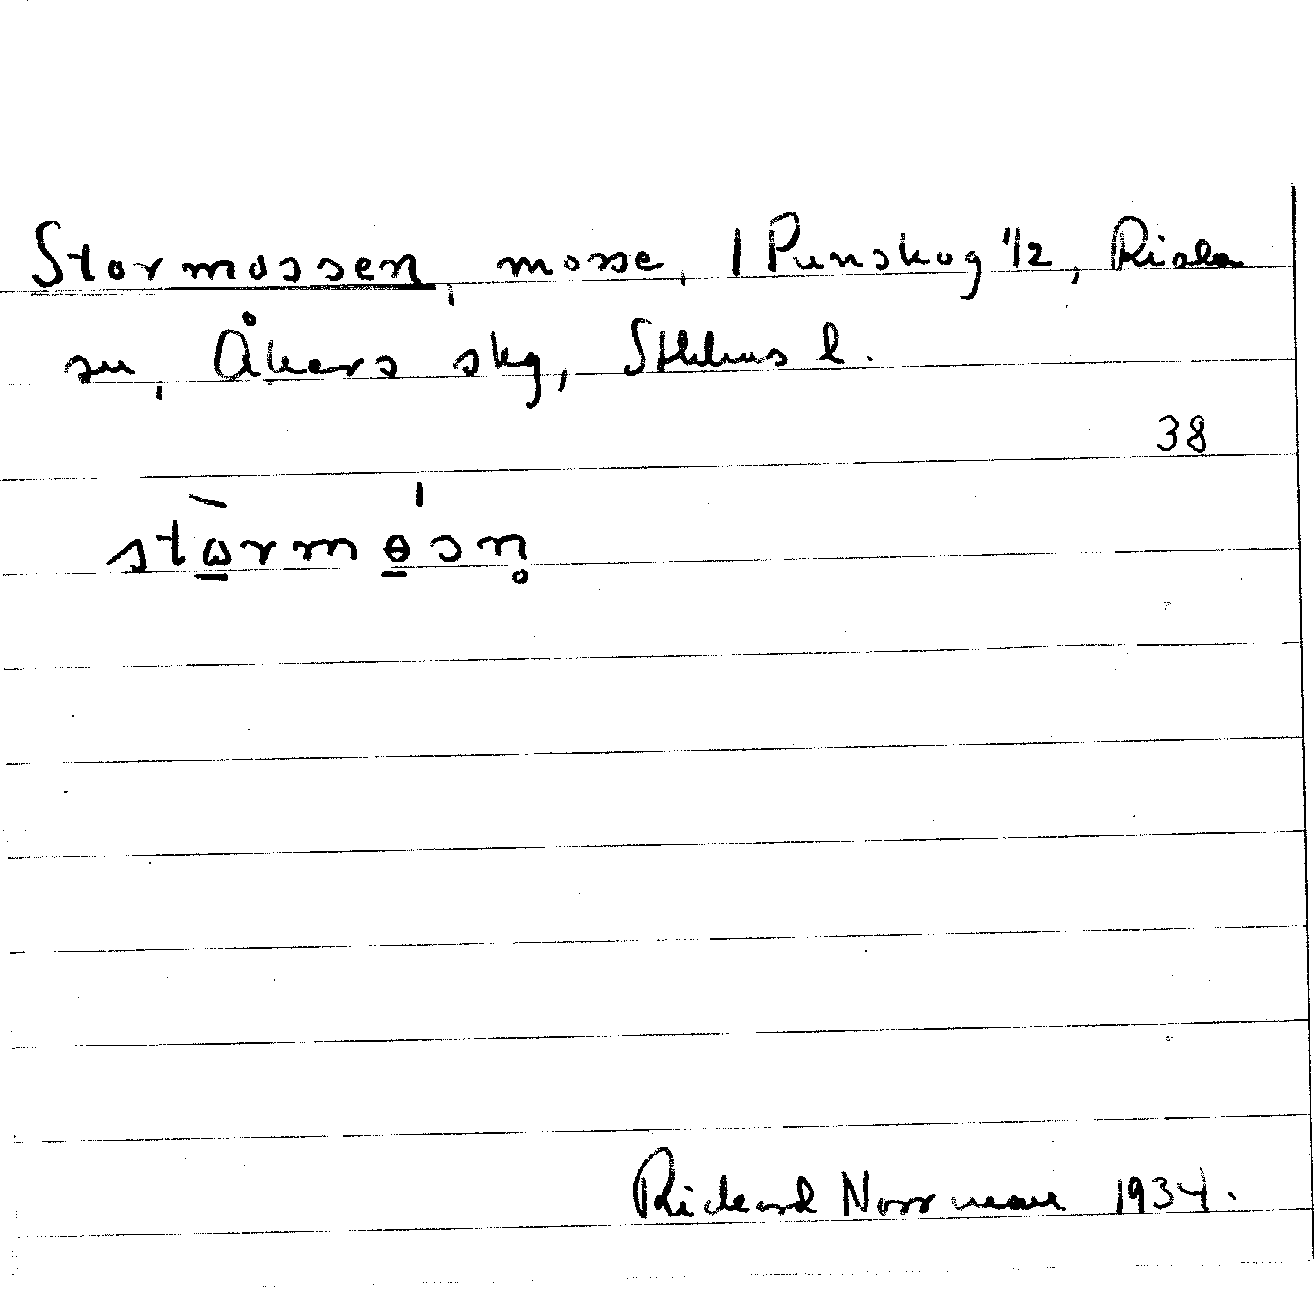 Stormossen, mosse, 1 Punskog 1/2, Riala
sn, Åkers skg, Sthlms l.
38
stὼrmɵ́sn̥
Rickard Norrman 1934.